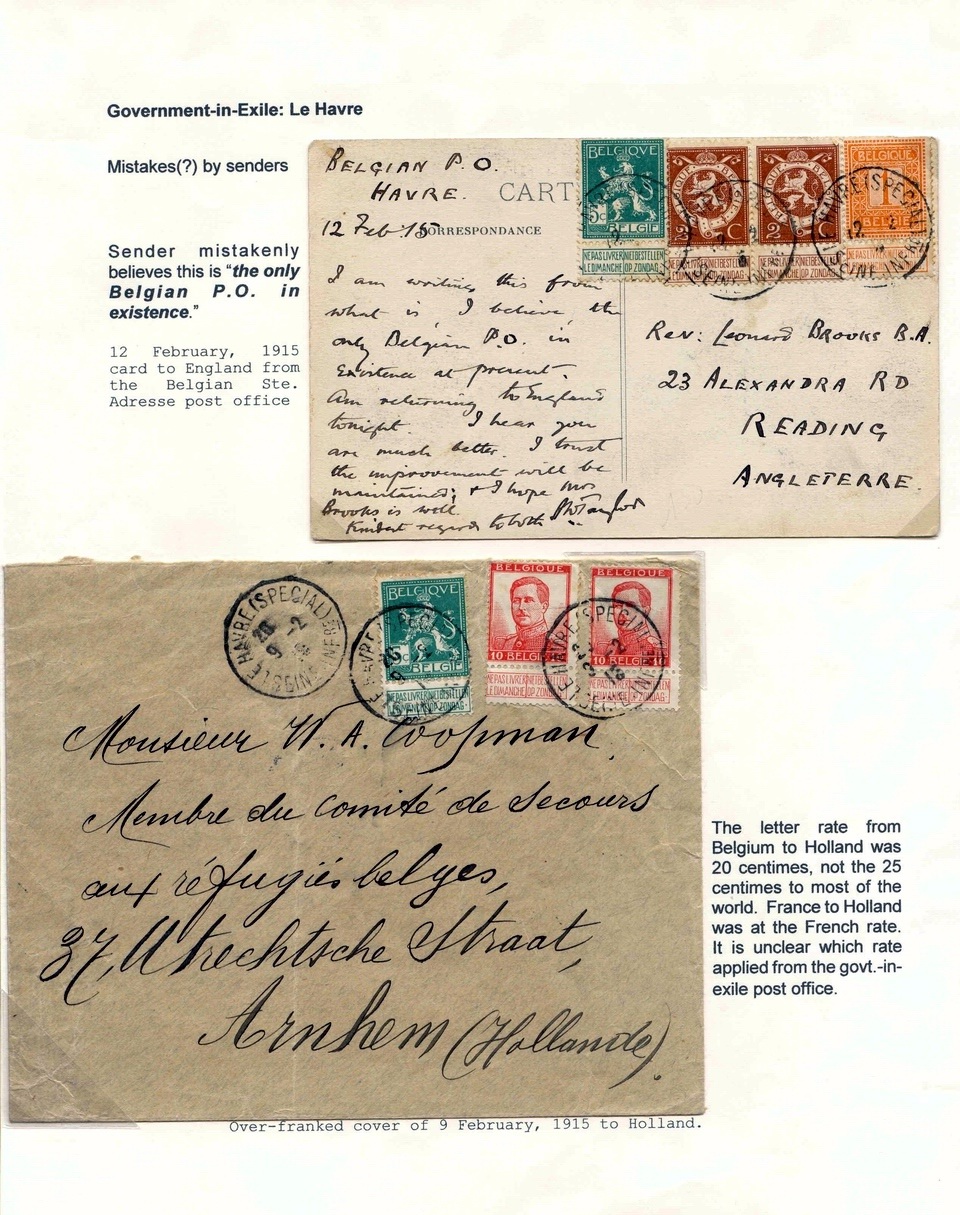 Government-in-Exile: Le Havre
Mistakes(?) by senders
Sender mistakenly
believes this is “the only
Belgian P.O. in
existence.”
12 February, 1915
card to England from
the Belgian Ste.
Adresse post office
BELGIAN P.O.
HAVRE.
CART
12 Feb 15
CORRESPONDANCE
I am writing this from
what is, I believe, the
only Belgian P.O. in
existence at present.
Am returning to England
tonight. I hear you
are much better. I trust
the improvement will be
maintained; & I hope Mrs
Brooks is well.
Kindest regards to both
BELGIQUE
5c
BELGIË
NE PAS LIVRER NIET BESTELLEN
LE DIMANCHE OP ZONDAG
2 C
NE PAS LIVRER NIET BESTELLEN
LE DIMANCHE OP ZONDAG
2 C
BELGIQUE
1
BELGIË
LE HAVRE (SPECIAL)
12 -2
SEINE INFRE
Rev: Leonard Brooks B.A.
23 ALEXANDRA RD
READING
ANGLETERRE.
LE HAVRE (SPECIAL)
SEINE INFRE
BELGIQUE
BELGIË
NE PAS LIVRER NIET BESTELLEN
LE DIMANCHE OP ZONDAG
BELGIQUE
10 BELGIË
NE PAS LIVRER NIET BESTELLEN
LE DIMANCHE OP ZONDAG
BELGIQUE
10 BELGIË
Monsieur W. A. Coopman
Membre du Comité de Secours
aux réfugiés belges,
37, Utrechtsche Straat,
Arnhem (Hollande).
The letter rate from
Belgium to Holland was
20 centimes, not the 25
centimes to most of the
world. France to Holland
was at the French rate.
It is unclear which rate
applied from the govt.-in-
exile post office.
Over-franked cover of 9 February, 1915 to Holland.